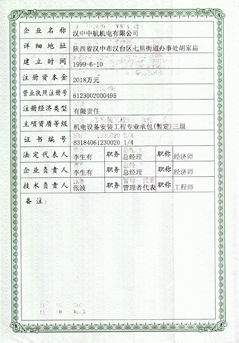 企业名称 汉中中航机电有限公司
详细地址 陕西省汉中市汉台区七里街道办事处胡家庙
建立时间 1999-6-10
注册资本金 2018万元
营业执照注册号 6123002000495
注册经济类型 有限责任
主项资质等级 机电设备安装工程专业承包(暂定)三级
证书编号 B3184061230020 1/4
法定代表人 李生有 职务 总经理 职称 经济师
企业负责人 李生有 职务 总经理 职称 经济师
技术负责人 张波 职务 管理者代表 职称 工程师
备注：